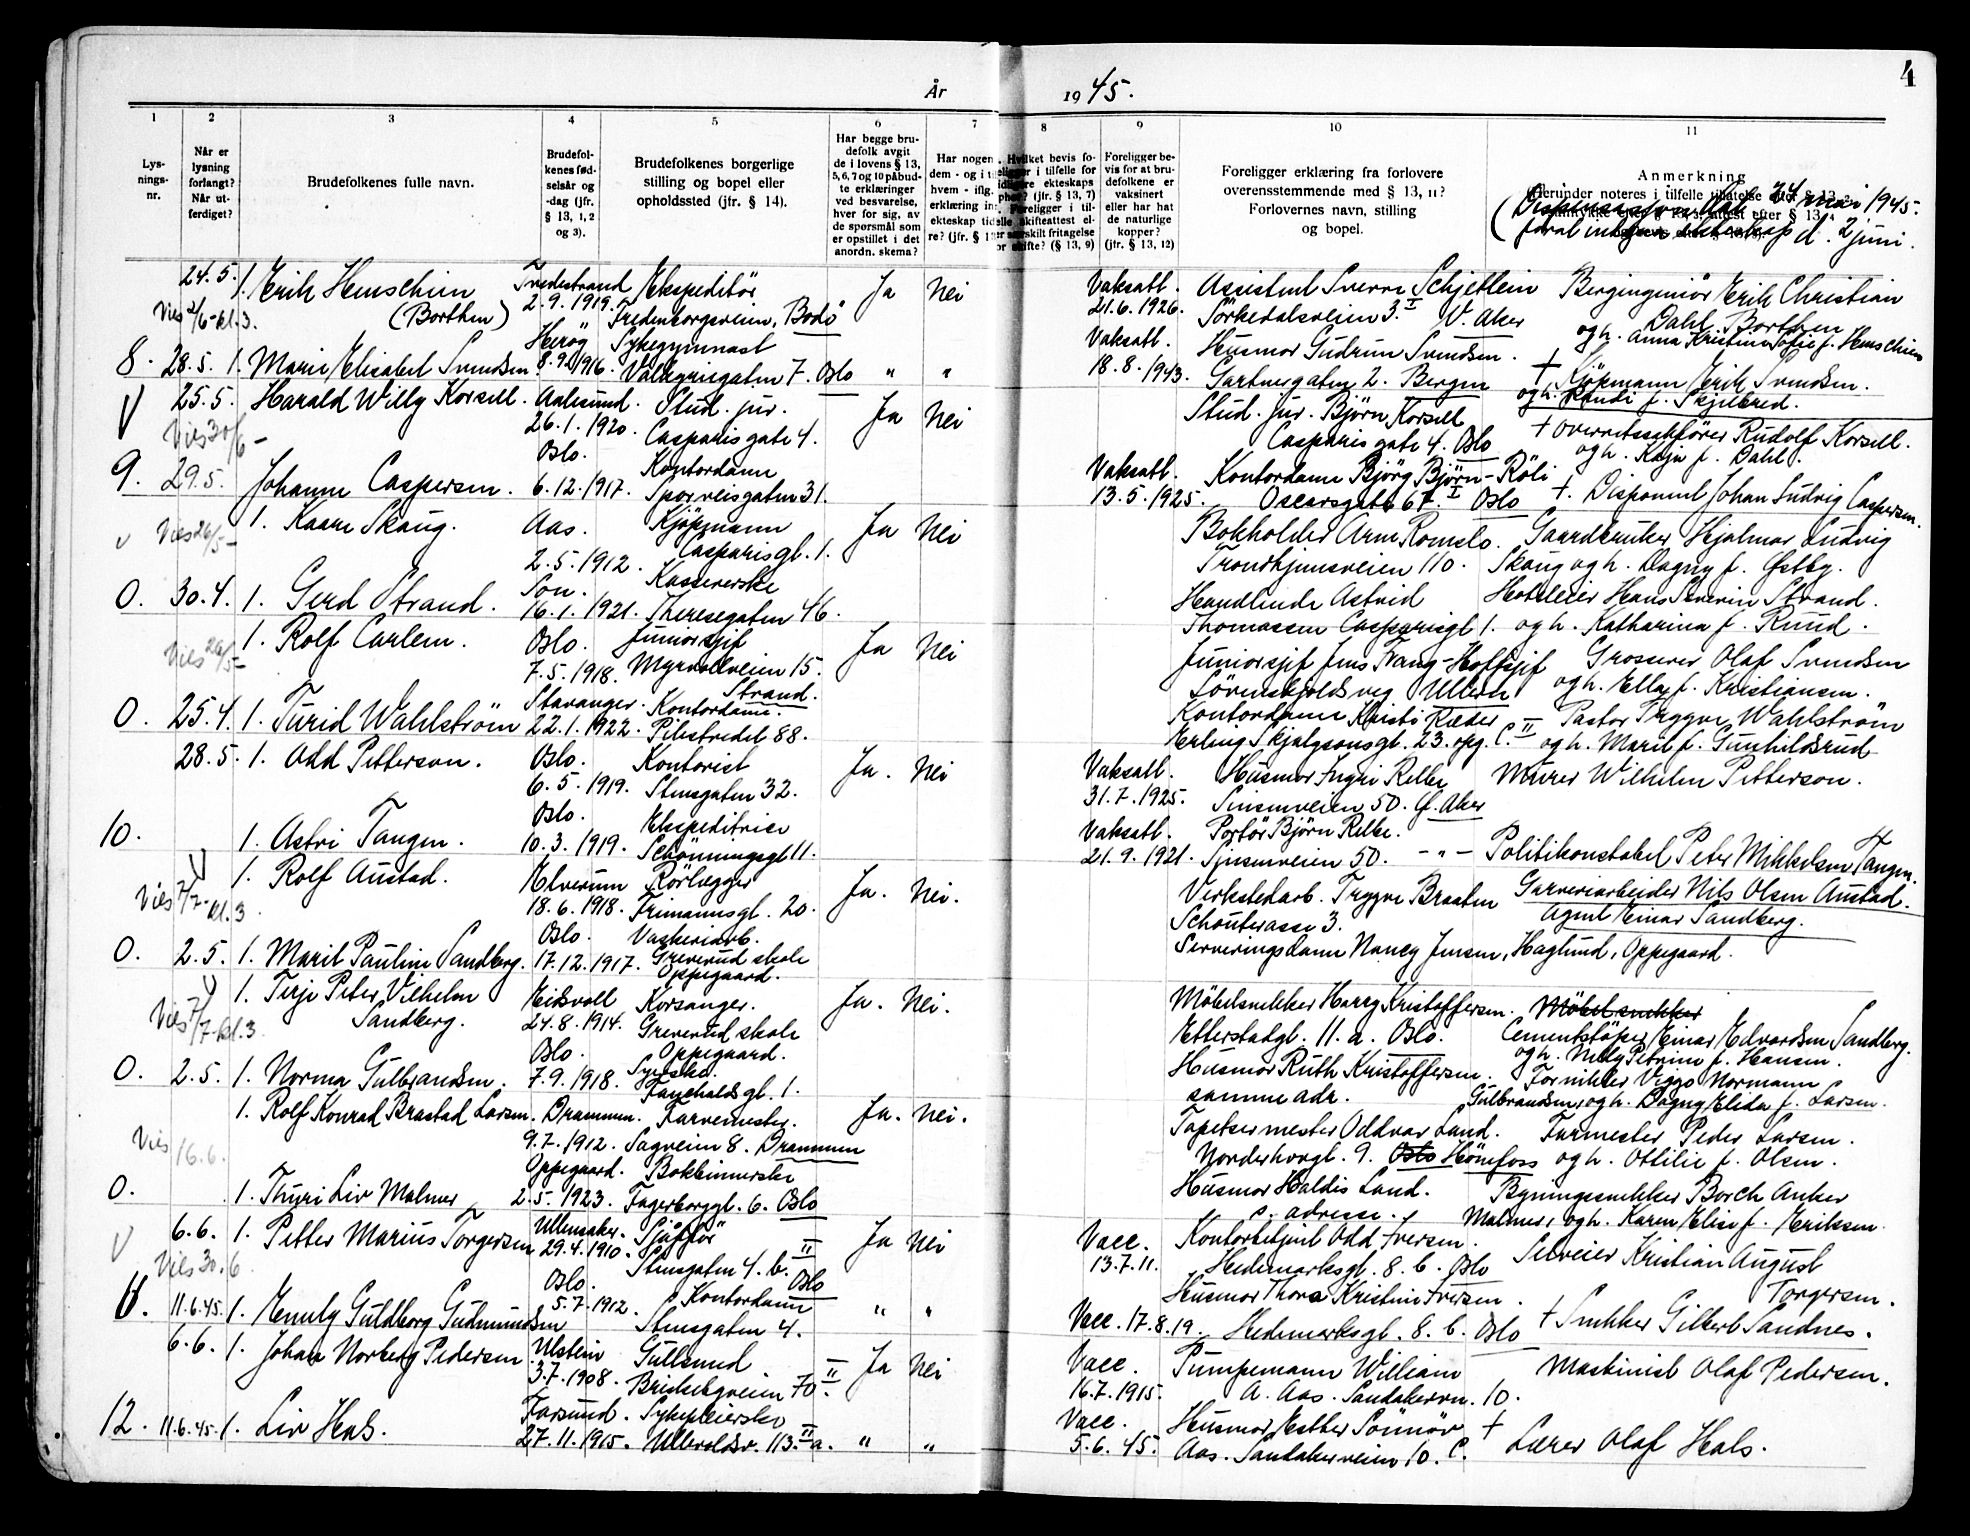 4
År 1945.
1 2 3 4 5 6 7 8 9 10 11
Lys-
nings-
nr.
Når er
lysning
forlangt?
Når ut-
ferdiget?
Brudefolkenes fulle navn.
Brudefol-
kenes fød-
selsår og
-dag (jfr.
§ 13, 1, 2
og 3).
Brudefolkenes borgerlige
stilling og bopel eller
opholdssted (jfr. § 14).
Har begge bru-
defolk avgit
de i lovens § 13,
5, 6, 7 og 10 påbud-
te erklæringer
ved besvarelse,
hver for sig, av
de spørsmål som
er opstillet i det
anordn. skema?
Har nogen
dem - og i t
hvem - iflg.
erklæring in
ekteskap tid
re? (jfr. § 1
Hvilket bevis fo-
religger i tilfelle for
ekteskaps
(jfr. § 13, 7)
Foreligger i til-
felle skifteattest el-
ler særskilt fritagelse
for skifte? (§ 13, 9)
Foreligger be-
vis for at bru-
defolkene er
vaksinert
eller har hat
de naturlige
kopper?
(jfr. § 13, 12)
Foreligger erklæring fra forlovere
overensstemmende med § 13, 11?
Forlovernes navn, stilling
og bopel.
Anmerkning
(Herunder noteres i tilfelle tillatelse efter § 13
24 mai 1945.
d. 2 juni.
24.5. 1. Erik Henschien Tvedestrand Ekspeditör Ja Nei Vaksatt. Assistent Sverre Schjetlein Bergingeniör Erik Christian
Vies 2/6-kl.3. (Borthen) 2.9.1919. Fredenborgveien, Bodö 21.6.1926. Sörkedalsveien 3. I V. Aker Dahl Borthen
og h. Anna Kristine Sofie f. Henschien
8. 28.5. 1. Marie Elisabet Svendsen Heröy 8.9.1916. Sykegymnast Valkyriegaten 7. Oslo " " Vaksatt. 18.8.1943. Husmor Gudrun Svendsen. Gartnergaten 2. Bergen + Kjöpmann Erik Svendsen.
og h. Randi f. Skjelbred.
V 25.5. Harald Willy Korsell. Aalesund. Stud. jur. Ja Nei Stud. jur. Björn Korsell + Overrettssakförer Rudolf Korsell.
Vies 30/6- 26.1.1920. Casparis gate 4. Casparis gate 4. Oslo og h. Kaja f. Dahl.
9. 29.5. Johanne Caspersen. Oslo. 6.12.1917. Kontordame Sporveisgaten 31. Vaksatt. 13.5.1925. Kontordame Björg Björn-Röli Oscarsgate 67. I Oslo +. Disponent Johan Ludvig Caspersen.
v Vies 26/5- 1. Kaare Skaug. Aas. Kjöpmann Ja Nei Bokholder Arne Romslo. Gaardbruker Hjalmar Ludvig
2.5.1912. Casparisgt. 1. Trondhjemsveien 110. Skaug og h. Dagny f. Østby.
0. 30.4. 1. Gerd Strand. Son. 16.1.1921. Kassererske Theresegaten 46. Handlende Astrid Thomassen Casparisgt 1. Hoteleier Hans Severin Strand.
og h. Katharina f. Ruud.
Vies 26/5- 1. Rolf Carlem. Oslo. Juniorsjef Ja Nei Juniorsjef Jens Frang-Hoftsjef Grosserer Olaf Svendsen
7.5.1918. Myrvollveien 15. Strand. Lövenskjolds veg Ullern og h. Ella f. Kristiansen.
0. 25.4. 1. Turid Wahlström Stavanger. 22.1.1922. Kontordame. Pilestredet 88. Kontordame Kristi Ræder Erling Skjalgsonsgt. 23. opg. C. II Pastor Trygve Wahlström
og h. Marit f. Gunhildsrud
28.5. 1. Odd Petterson. Oslo. Kontorist Ja. Nei Vaksatt. Husmor Ingri Relbe Murer Wilhelm Petterson.
6.5.1919. Stensgaten 32. 31.7.1925. Sinsenveien 50. Ö. Aker
10. 1. Astri Tangen. Oslo. 10.3.1919. Ekspeditrise Schönningsgt 11. Vaksatt. 21.9.1921. Portör Björn Relbe. Sinsenveien 50. -"- Politikonstabel Peter Mikkelsen Tangen.
V 1. Rolf Austad. Elverum Rörlegger Ja. Nei. Verkstedarb. Trygve Braaten Garveriarbeider Nils Olsen Austad.
Vies 7/7-kl.3 18.6.1918. Frimannsgt. 20. Schouterasse 3. Agent Einar Sandberg.
0. 2.5. 1. Marit Pauline Sandberg. Oslo. 17.12.1917. Vaskeriarb. Greverud skole Oppegaard. Serveringsdame Nancy Jensen, Haglund, Oppegaard.
V 1. Terje Peter Vilhelm Sandberg. Eidsvoll Korsanger. Ja. Nei. Möbelsnekker Harry Kristoffersen. Möbelsnekker
Vies 7/7-kl.3 24.8.1914. Greverud skole Oppegaard. Etterstadgt. 11. a. Oslo. Cementstöper Einar Edvardsen Sandberg.
og h. Nelly Petrine f. Hansen.
0. 2.5. 1. Norma Gulbrandsen. Oslo. 7.9.1918. Syerske. Fauchaldsgt. 1. Husmor Ruth Kristoffersen. samme adr. Fornikler Viggo Normann
Gulbrandsen, og h. Dagny Elida f. Larsen.
1. Rolf Konrad Brastad Larsen. Drammen. Farvemester. Ja. Nei. Tapetsermester Oddvar Land. Farmester Peder Larsen.
Vies 16.6. 9.7.1912. Sagveien 8. Drammen Norderhovgt. 9. Oslo Hönefoss og h. Otilie f. Olsen.
0. 1. Thyri Liv Malmer Oppegaard. 2.5.1923. Bokbinnerske Fagerborggt. 6. Oslo Husmor Haldis Land. s. adresse. Bygningssnekker Borch Anker
Malmer, og h. Karen Elise f. Eriksen
V 6.6. 1. Petter Marius Torgersen Ullensaker. Sjåfför Ja Nei Vacc. Kontorbetjent Odd Iversen. Selveier Kristian August
Vies 30.6. 29.4.1910. Stensgaten 4. b. II Oslo 13.7.11. Hedemarksgt. 8. b. Oslo Torgersen.
11. 11.6.45. 1. Emily Guldborg Gudmundsen Oslo. 5.7.1912. Kontordame Stensgaten 4. " " Vacc. 17.8.19. Husmor Thora Kristine Iversen. Hedemarksgt. 8. b. Oslo + Snekker Gilbert Sandnes.
6.6. 1. Johan Norberg Pedersen Ulstein Gullsmed Ja Nei Vacc. Pumpemann William Maskinist Olaf Pedersen.
3.7.1908. Briskebyveien 70. II 16.7.1915. A. Aas. Sandakervn. 10.
12. 11.6.45. 1. Liv Hals. Farsund. 27.11.1915. Sykepleierske Ullevoldsv. 113. II a. " " Vacc. 5.6.45. Husmor Esther Sönnöv Aas. Sandakerveien 10. C. + Lærer Olaf Hals.